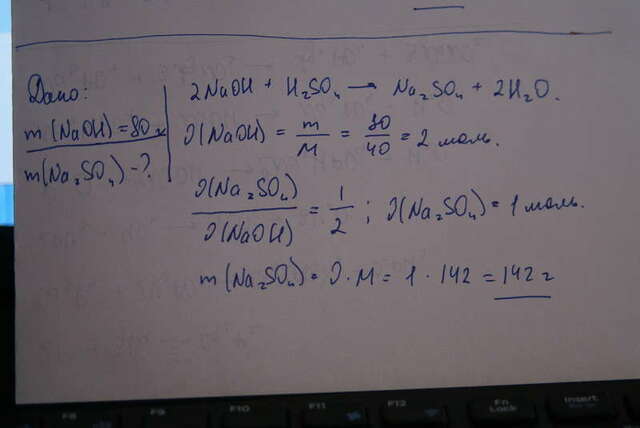 Дано:
m(NaOH)=80 г
m(Na₂SO₄)-?
2NaOH + H₂SO₄ → Na₂SO₄ + 2H₂O.
ν(NaOH) = m/M = 80/40 = 2 моль.
ν(Na₂SO₄)/ν(NaOH) = 1/2; ν(Na₂SO₄) = 1 моль.
m(Na₂SO₄) = ν·M = 1·142 = 142 г
F8 F9 F10 F11 F12 Fn Lock Insert